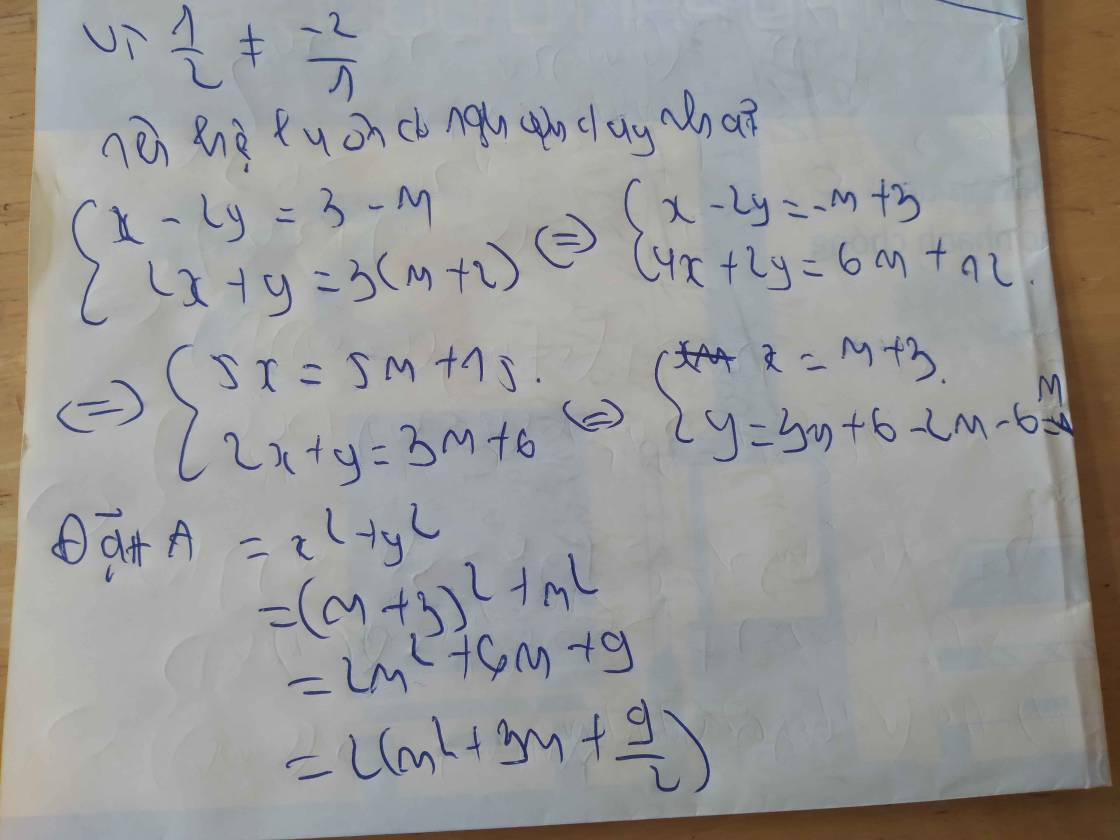 Vì 1/2 ≠ -2/1
nên hệ luôn có nghiệm duy nhất
{ x - 2y = 3 - m ⇔ { x - 2y = -m + 3
{ 2x + y = 3(m + 2) { 4x + 2y = 6m + 12.
⇔ { 5x = 5m + 15. ⇔ { x = m + 3.
{ 2x + y = 3m + 6 { y = 3m + 6 - 2m - 6 = m
Đặt A = x² + y²
= (m + 3)² + m²
= 2m² + 6m + 9
= 2(m² + 3m + 9/2)